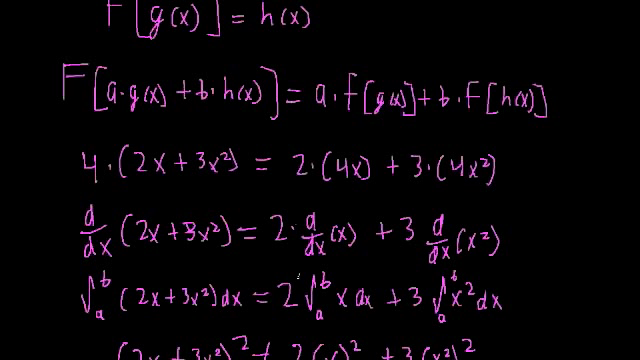 F[g(x)] = h(x)
F[a·g(x) + b·h(x)] = a·F[g(x)] + b·F[h(x)]
4·(2x + 3x²) = 2·(4x) + 3·(4x²)
d/dx (2x + 3x²) = 2·d/dx (x) + 3 d/dx (x²)
∫ₐᵇ (2x + 3x²) dx = 2 ∫ₐᵇ x dx + 3 ∫ₐᵇ x² dx
(2x + 3x²)² ≠ 2(x)² + 3(x²)²